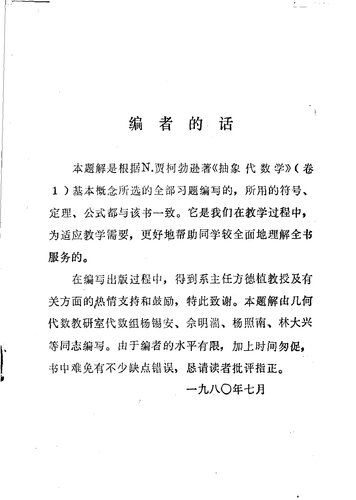 编者的话
本题解是根据N.贾柯勃逊著《抽象代数学》(卷
1)基本概念所选的全部习题编写的，所用的符号、
定理、公式都与该书一致。它是我们在教学过程中，
为适应教学需要，更好地帮助同学较全面地理解全书
服务的。
在编写出版过程中，得到系主任方德植教授及有
关方面的热情支持和鼓励，特此致谢。本题解由几何
代数教研室代数组杨锡安、佘明淄、杨照南、林大兴
等同志编写。由于编者的水平有限，加上时间匆促，
书中难免有不少缺点错误，恳请读者批评指正。
一九八〇年七月